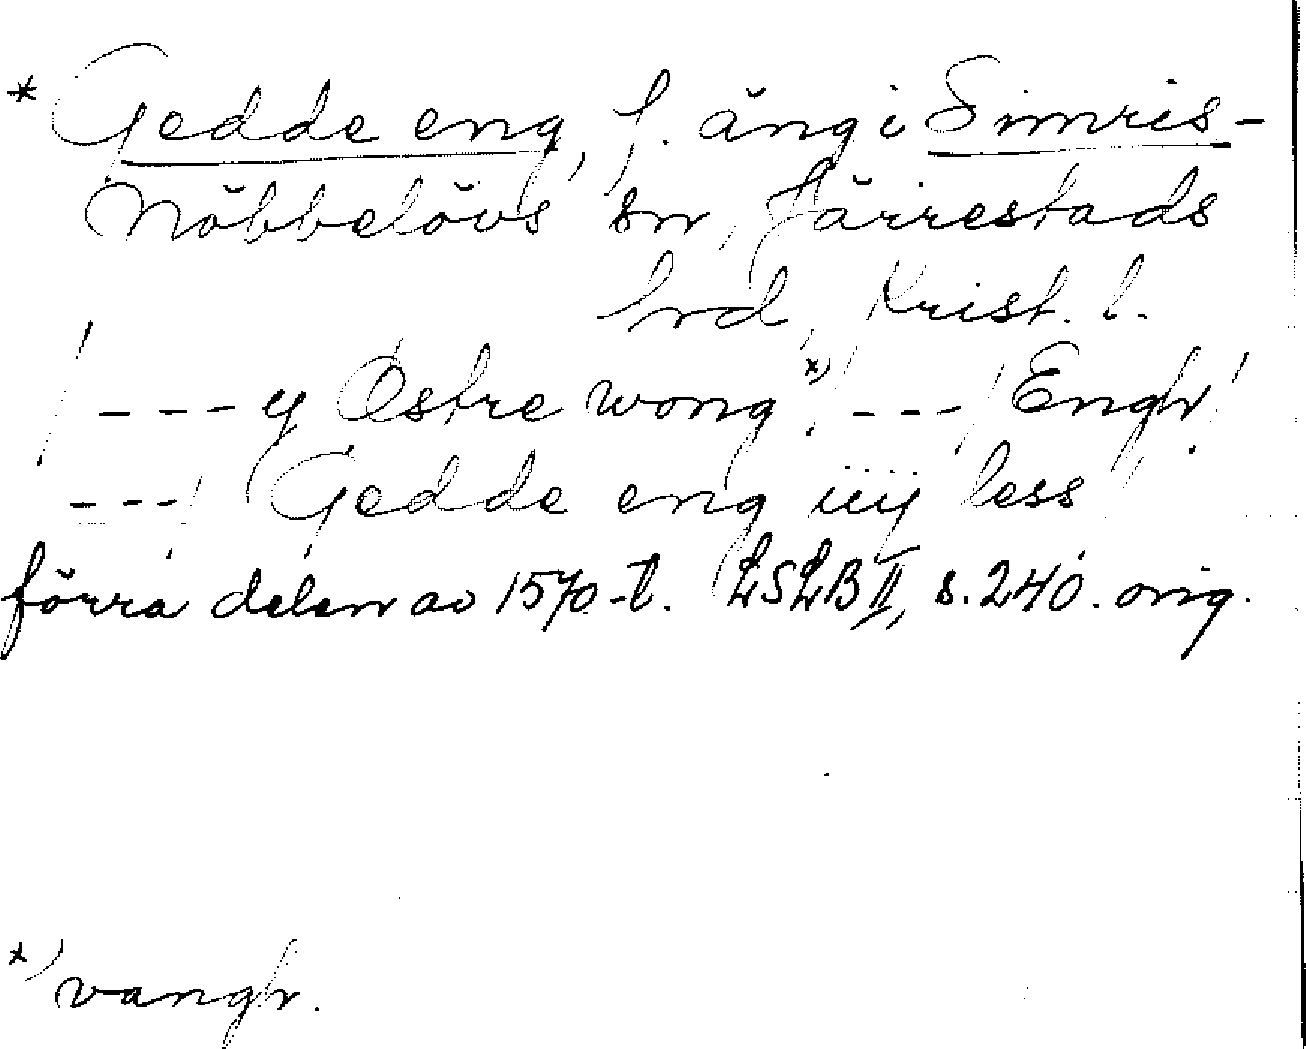 * Gedde eng, f. äng i Simris-
Nöbbelövs sn, Järrestads
hrd, Krist. l.
/ --- y Østre wong *) / --- / Engh. /
--- / Gedde eng iiij less /
förra delen av 1570-t. LSLB II, s. 240. orig.
*) vangh.